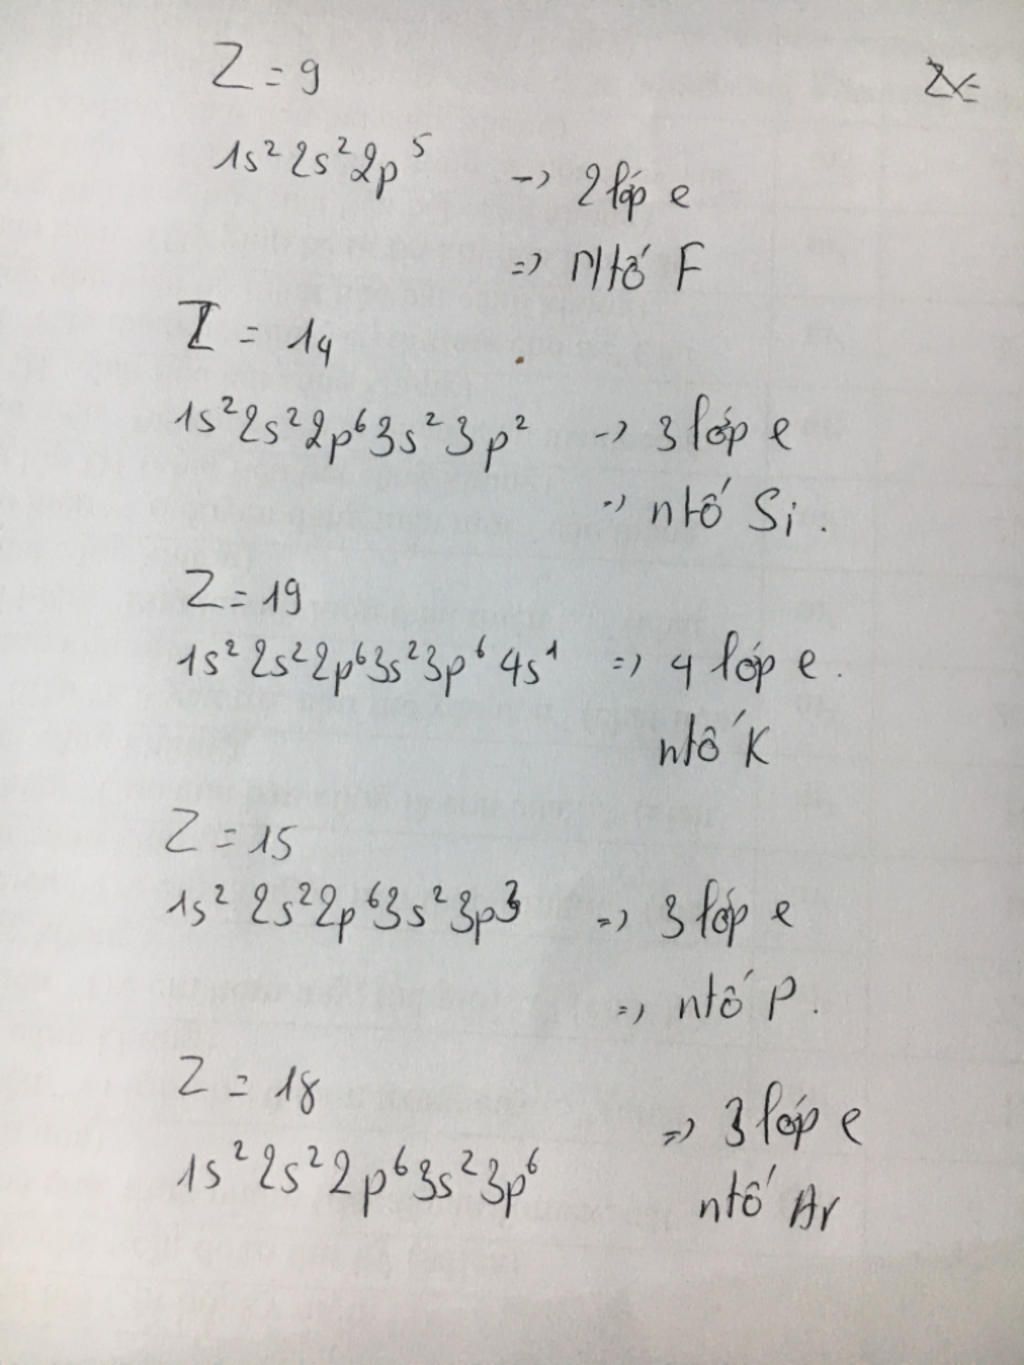 Z = 9
1s² 2s² 2p⁵ → 2 lớp e
⇒ Ntố F
Z = 14
1s² 2s² 2p⁶ 3s² 3p² → 3 lớp e
→ ntố Si .
Z = 19
1s² 2s² 2p⁶ 3s² 3p⁶ 4s¹ ⇒ 4 lớp e .
ntố K
Z = 15
1s² 2s² 2p⁶ 3s² 3p³ ⇒ 3 lớp e
⇒ ntố P .
Z = 18
1s² 2s² 2p⁶ 3s² 3p⁶ ⇒ 3 lớp e
ntố Ar